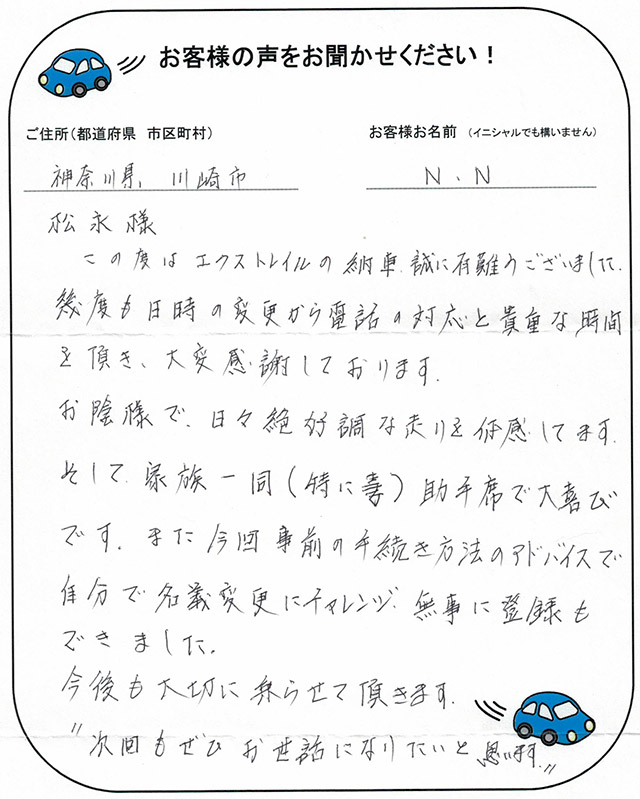 お客様の声をお聞かせください！
ご住所（都道府県　市区町村）
お客様お名前　（イニシャルでも構いません）
神奈川県、川崎市
N．N
松永様
この度はエクストレイルの納車、誠に有難うございました。
幾度も日時の変更から電話の対応と貴重な時間
を頂き、大変感謝しております。
お陰様で、日々絶好調な走りを体感してます。
そして、家族一同（特に妻）助手席で大喜び
です。また今回事前の手続き方法のアドバイスで
自分で名義変更にチャレンジ、無事に登録も
できました。
今後も大切に乗らせて頂きます。
〃次回もぜひお世話になりたいと思います。〃